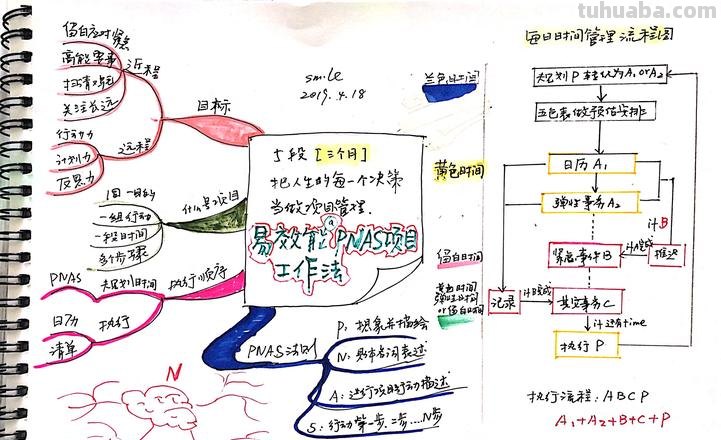 tuhuaba.com
smile
2019.4.18
5段[三个月]
把人生的每一个决策
当做项目管理.
易效能®PNAS项目
工作法
目标
近程
留白应对紧急
高能要事
扫清障碍
关注长远
远程
行动力
计划力
反思力
什么是项目
1周一目的
一组行动
一段时间
多个步骤
执行顺序
PNAS
规划时间
执行
日历
清单
PNAS法则
P: 想象并描绘
N: 财布名词表述
A: 进行项目行动描述
S: 行动第一步.二步...N步
N
蓝色时间
黄色时间
留白时间
黄色时间
弹性时间
or留白时间
每日时间管理流程图
规划P 转化为A₁ or A₂
五色表做预估安排
日历 A₁
弹性事务A₂
计B
紧急事件B
计A完成
推迟
记录
计B完成
其它事务C
计还有time
执行 P
执行流程: ABCP
A₁+A₂+B+C+P